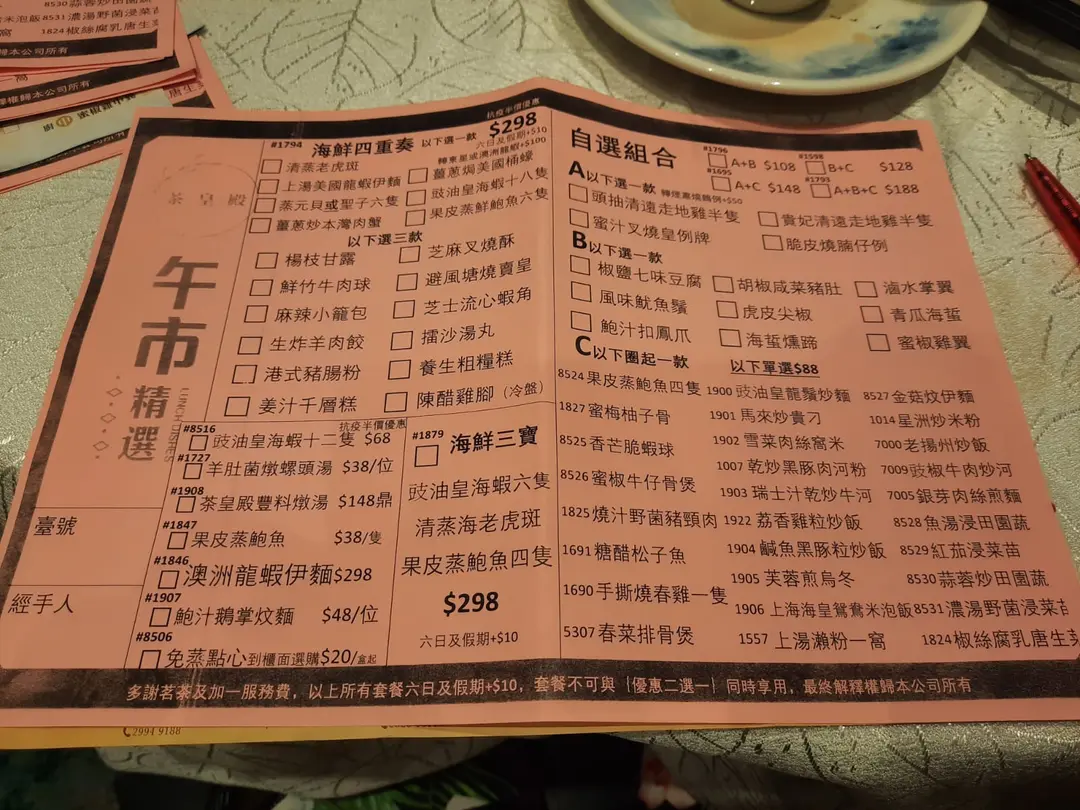 8530 蒜蓉炒田園蔬
米泡飯 8531 濃湯野菌浸菜苗
窩 1824 椒絲腐乳唐生菜
歸本公司所有
茶皇殿
午市
精選
LUNCH DISHES
臺號
經手人
抗疫半價優惠
#1794 海鮮四重奏 以下選一款 $298
六日及假期+$10
轉東星或澳洲龍蝦+$100
清蒸老虎斑
薑蔥焗美國桶蠔
上湯美國龍蝦伊麵
豉油皇海蝦十八隻
蒸元貝或聖子六隻
果皮蒸鮮鮑魚六隻
薑蔥炒本灣肉蟹
以下選三款
楊枝甘露
芝麻叉燒酥
鮮竹牛肉球
避風塘燒賣皇
麻辣小籠包
芝士流心蝦角
生炸羊肉餃
擂沙湯丸
港式豬腸粉
養生粗糧糕
姜汁千層糕
陳醋雞腳（冷盤）
抗疫半價優惠
#8516 豉油皇海蝦十二隻 $68
#1727 羊肚菌燉螺頭湯 $38/位
#1908 茶皇殿豐料燉湯 $148鼎
#1847 果皮蒸鮑魚 $38/隻
#1846 澳洲龍蝦伊麵$298
#1907 鮑汁鵝掌炆麵 $48/位
#8506 免蒸點心到櫃面選購$20/盒起
#1879 海鮮三寶
豉油皇海蝦六隻
清蒸海老虎斑
果皮蒸鮑魚四隻
$298
六日及假期+$10
自選組合
#1796 A+B $108
#1598 B+C $128
#1695 A+C $148
#1793 A+B+C $188
A以下選一款
頭抽清遠走地雞半隻
貴妃清遠走地雞半隻
蜜汁叉燒皇例牌
脆皮燒腩仔例
B以下選一款
椒鹽七味豆腐
胡椒咸菜豬肚
滷水掌翼
風味魷魚鬚
虎皮尖椒
青瓜海蜇
鮑汁扣鳳爪
海蜇燻蹄
蜜椒雞翼
C以下圈起一款
以下單選$88
8524 果皮蒸鮑魚四隻
1900 豉油皇龍鬚炒麵
8527 金菇炆伊麵
1827 蜜梅柚子骨
1901 馬來炒貴刁
1014 星洲炒米粉
8525 香芒脆蝦球
1902 雪菜肉絲窩米
7000 老揚州炒飯
8526 蜜椒牛仔骨煲
1007 乾炒黑豚肉河粉
7009 豉椒牛肉炒河
1825 燒汁野菌豬頸肉
1903 瑞士汁乾炒牛河
7005 銀芽肉絲煎麵
1922 荔香雞粒炒飯
8528 魚湯浸田園蔬
1691 糖醋松子魚
1904 鹹魚黑豚粒炒飯
8529 紅茄浸菜苗
1690 手撕燒春雞一隻
1905 芙蓉煎烏冬
8530 蒜蓉炒田園蔬
1906 上海海皇鴛鴦米泡飯
8531 濃湯野菌浸菜苗
5307 春菜排骨煲
1557 上湯瀨粉一窩
1824 椒絲腐乳唐生菜
多謝茗茶及加一服務費，以上所有套餐六日及假期+$10，套餐不可與｛優惠二選一｝同時享用，最終解釋權歸本公司所有
2994 9188